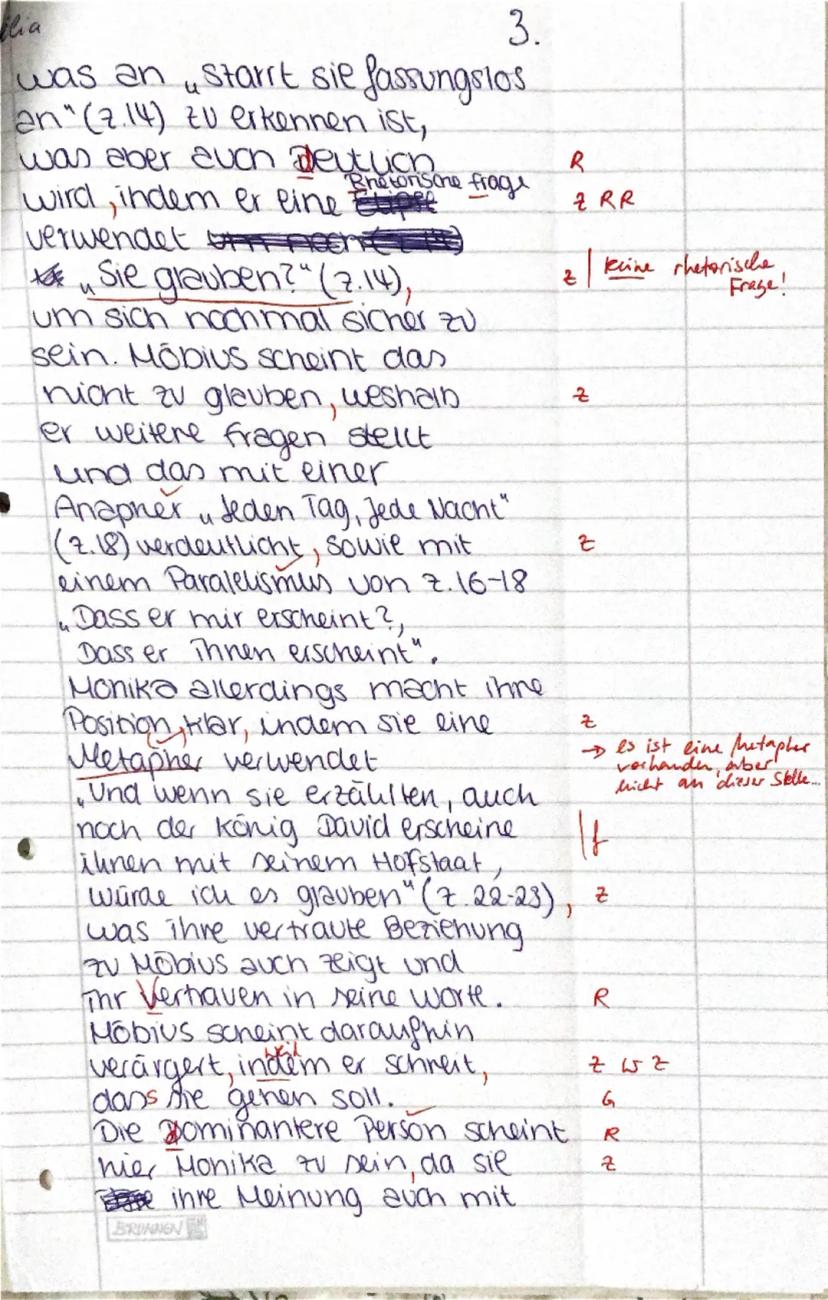 ilia
3.
was an „starrt sie fassungslos
an“ (Z.14) zu erkennen ist,
was aber auch deutlich R
Rhetorische frage
wird, indem er eine Z R R
verwendet
„Sie glauben?“ (Z.14), Z | keine rhetorische
Frage!
um sich nochmal sicher zu
sein. Möbius scheint das
nicht zu glauben, weshalb Z
er weitere fragen stellt
und das mit einer
Anapher „Jeden Tag, Jede Nacht“
(Z.18) verdeutlicht, sowie mit Z
einem Paralelismus von Z.16-18
„Dass er mir erscheint?,
Dass er ihnen erscheint“.
Monika allerdings macht ihre
Position, klar, indem sie eine Z
Metapher verwendet → es ist eine Metapher
vorhanden, aber
nicht an dieser Stelle...
„Und wenn sie erzählten, auch
noch der König David erscheine | f
ihnen mit seinem Hofstaat,
würde ich es glauben“ (Z.22-23), Z
was ihre vertraute Beziehung
zu Möbius auch zeigt und
ihr Vertrauen in seine Worte. R
Möbius scheint daraufhin
weil
verärgert, indem er schreit, Z W Z
dass sie gehen soll. G
Die dominantere Person scheint R
hier Monika zu sein, da sie Z
ihre Meinung auch mit
BRUNNEN